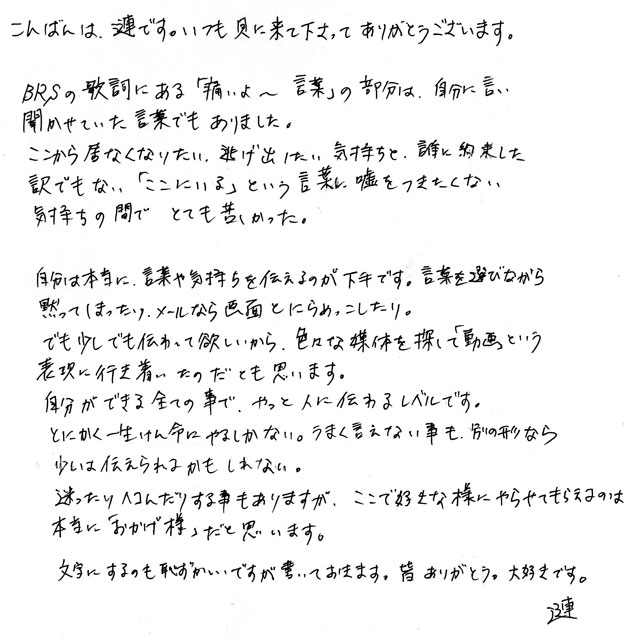 こんばんは、漣です。いつも見に来て下さってありがとうございます。
BRSの歌詞にある「痛いよ〜 言葉」の部分は、自分に言い
聞かせていた言葉でもありました。
ここから居なくなりたい、逃げ出したい気持ちと、誰に約束した
訳でもない「ここにいる」という言葉に嘘をつきたくない
気持ちの間で とても苦しかった。
自分は本当に、言葉や気持ちを伝えるのが下手です。言葉を選びながら
黙ってしまったり、メールなら画面とにらめっこしたり。
でも少しでも伝わって欲しいから、色々な媒体を探して「動画」という
表現に行き着いたのだとも思います。
自分ができる全ての事で、やっと人に伝わるレベルです。
とにかく一生けん命にやるしかない。うまく言えない事も、別の形なら
少しは伝えられるかもしれない。
迷ったりヘコんだりする事もありますが、ここで好きな様にやらせてもらえるのは
本当に「おかげ様」だと思います。
文字にするのも恥ずかしいですが書いておきます。皆ありがとう。大好きです。
漣